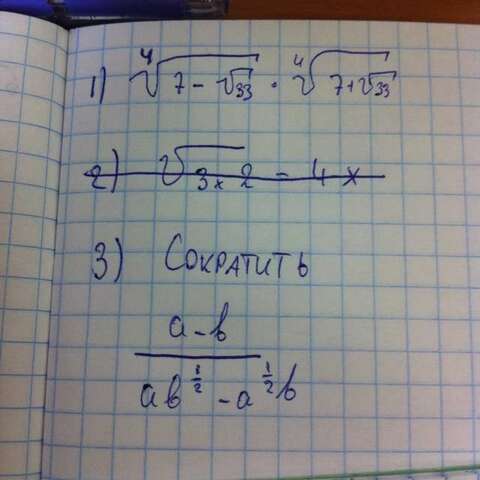 1) ∜(7 - √33) · ∜(7 + √33)
2) √3x2 - 4x
3) Сократить
a - b
ab^½ - a^½b